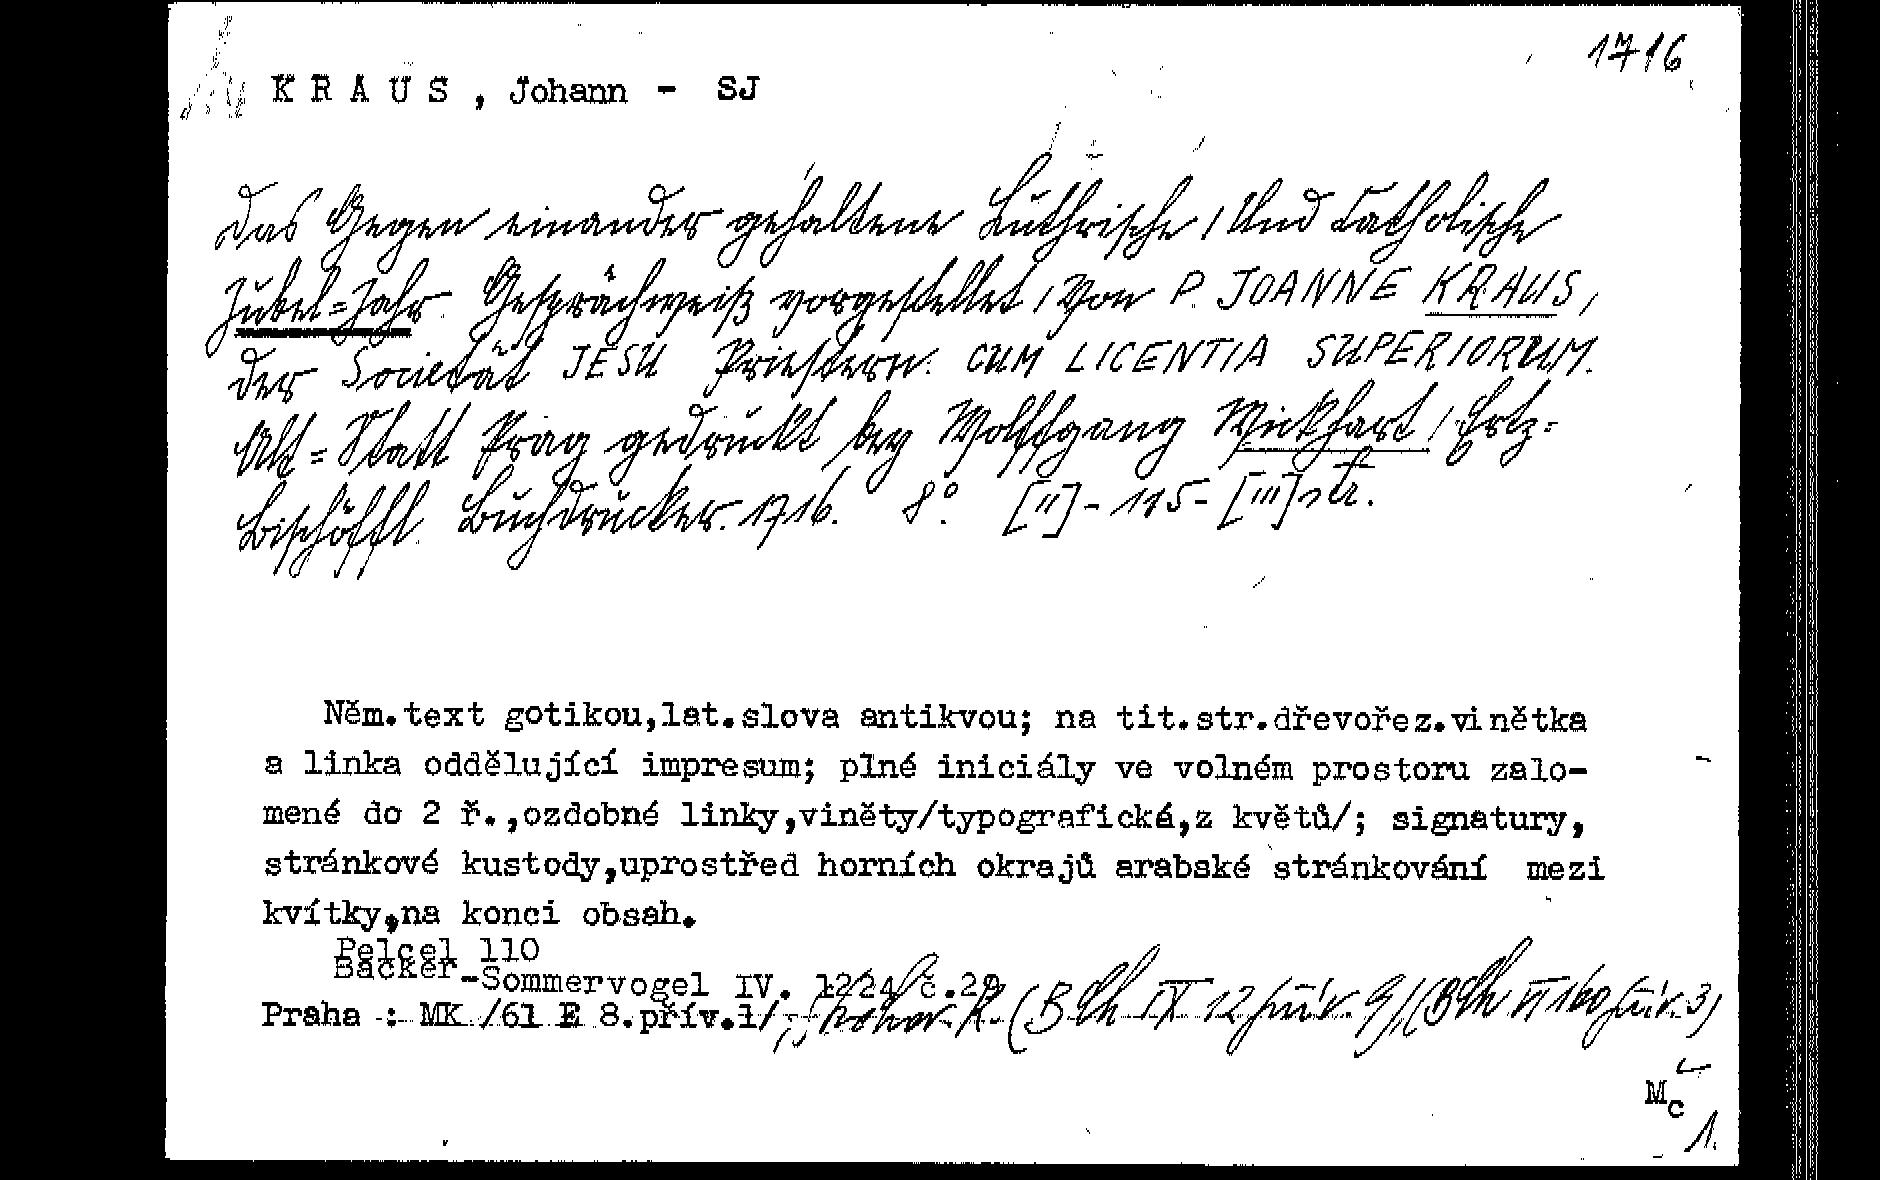 1716
KRAUS, Johann - SJ
Das Gegen einander gehaltene Luthrische / Und Catholische
Jubel=Jahr. Gesprächweiß vorgestellet / Von P. JOANNE KRAUS,
der Societät JESU Priestern. CUM LICENTIA SUPERIORUM.
Alt=Statt Prag gedruckt bey Wolffgang Wickhart / Ertz=
Bischöffl. Buchdrucker. 1716. 8°. [II] - 115 - [III] str.
Něm.text gotikou,lat.slova antikvou; na tit.str.dřevořez.vinětka
a linka oddělující impresum; plné iniciály ve volném prostoru zalo-
mené do 2 ř.,ozdobné linky,viněty/typografické,z květů/; signatury,
stránkové kustody,uprostřed horních okrajů arabské stránkování mezi
kvítky,na konci obsah.
Pelcel 110
Backer-Sommervogel IV. 1224 č.20
Praha : MK /61 E 8.přív.1/ (Bčh IX 12 přív. 9)/(Bčh VI 160 přív. 3)
Mc
1.